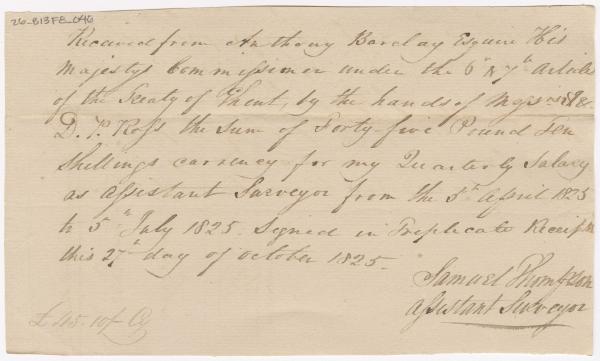 26-B13F8-046
Received from Anthony Barclay Esquire His
Majestys Commissioner under the 6th & 7th Article
of the Treaty of Ghent, by the hands of Messrs
D. P. Ross the sum of Forty-five Pound Ten
Shillings currency for my Quarterly Salary
as Assistant Surveyor from the 5th April 1825
to 5th July 1825. Signed in Triplicate Receipts
this 27th day of October 1825.
Samuel Thompson
Assistant Surveyor
£45.10/ Cy